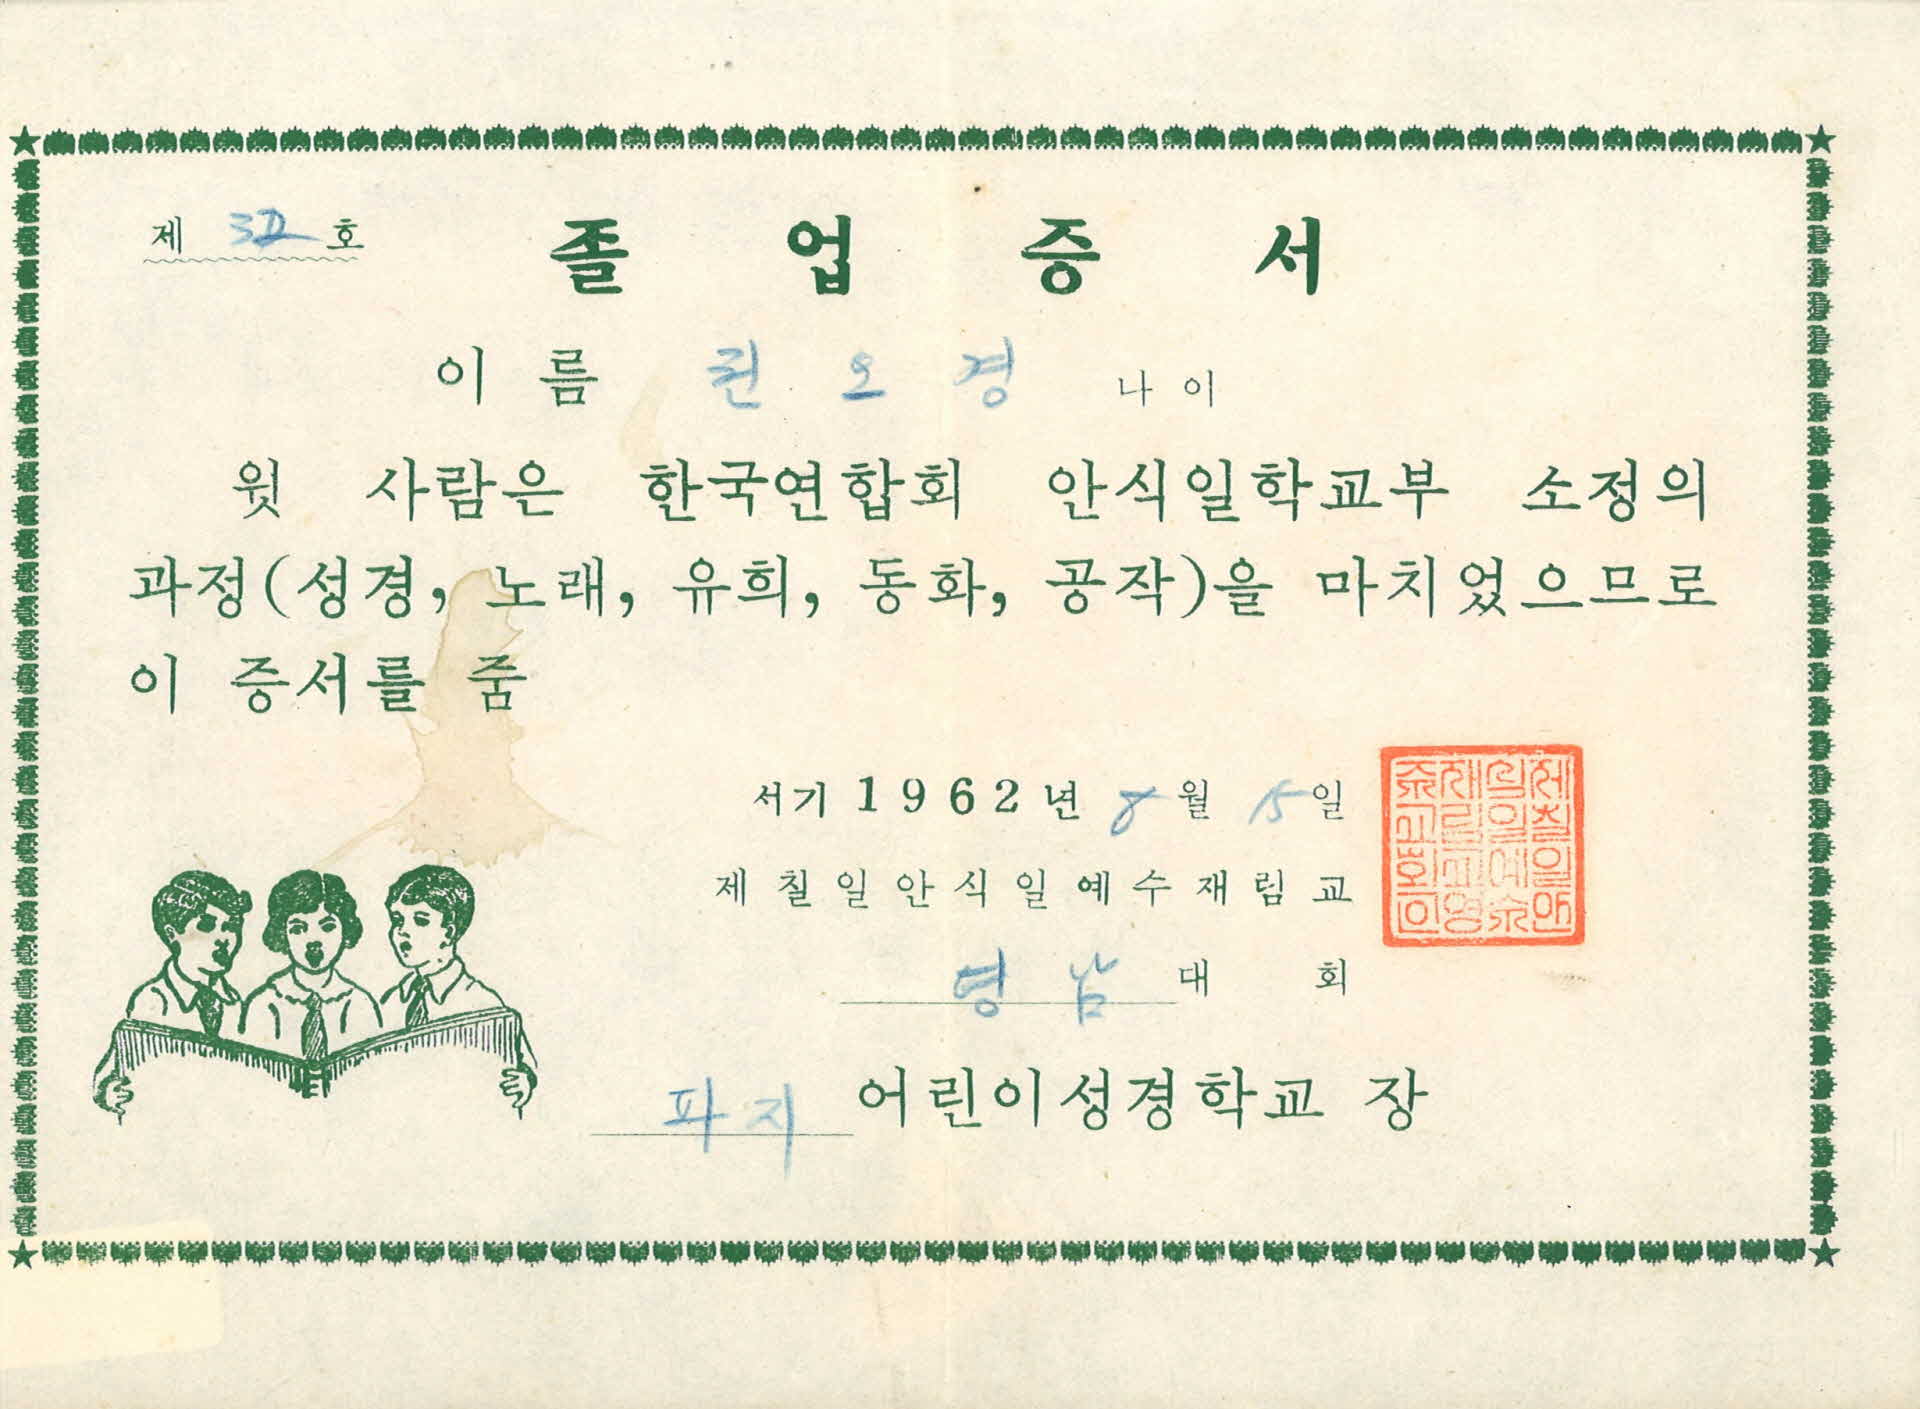 제 32 호
졸업증서
이름 권오경 나이
윗 사람은 한국연합회 안식일학교부 소정의
과정(성경, 노래, 유희, 동화, 공작)을 마치었으므로
이 증서를 줌
서기 1962년 8월 15일
제칠일안식일예수재림교
영남대회
파지 어린이성경학교 장
제칠일안
식일예수
재림교영